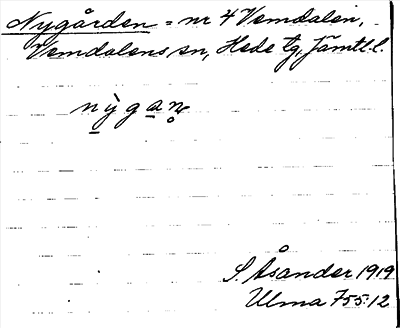 Nygården = nr 4 Vemdalen,
Vemdalens sn, Hede tg, Jämtl. l.
nỳgan̥
S. Åsander 1919
Ulma 755:12